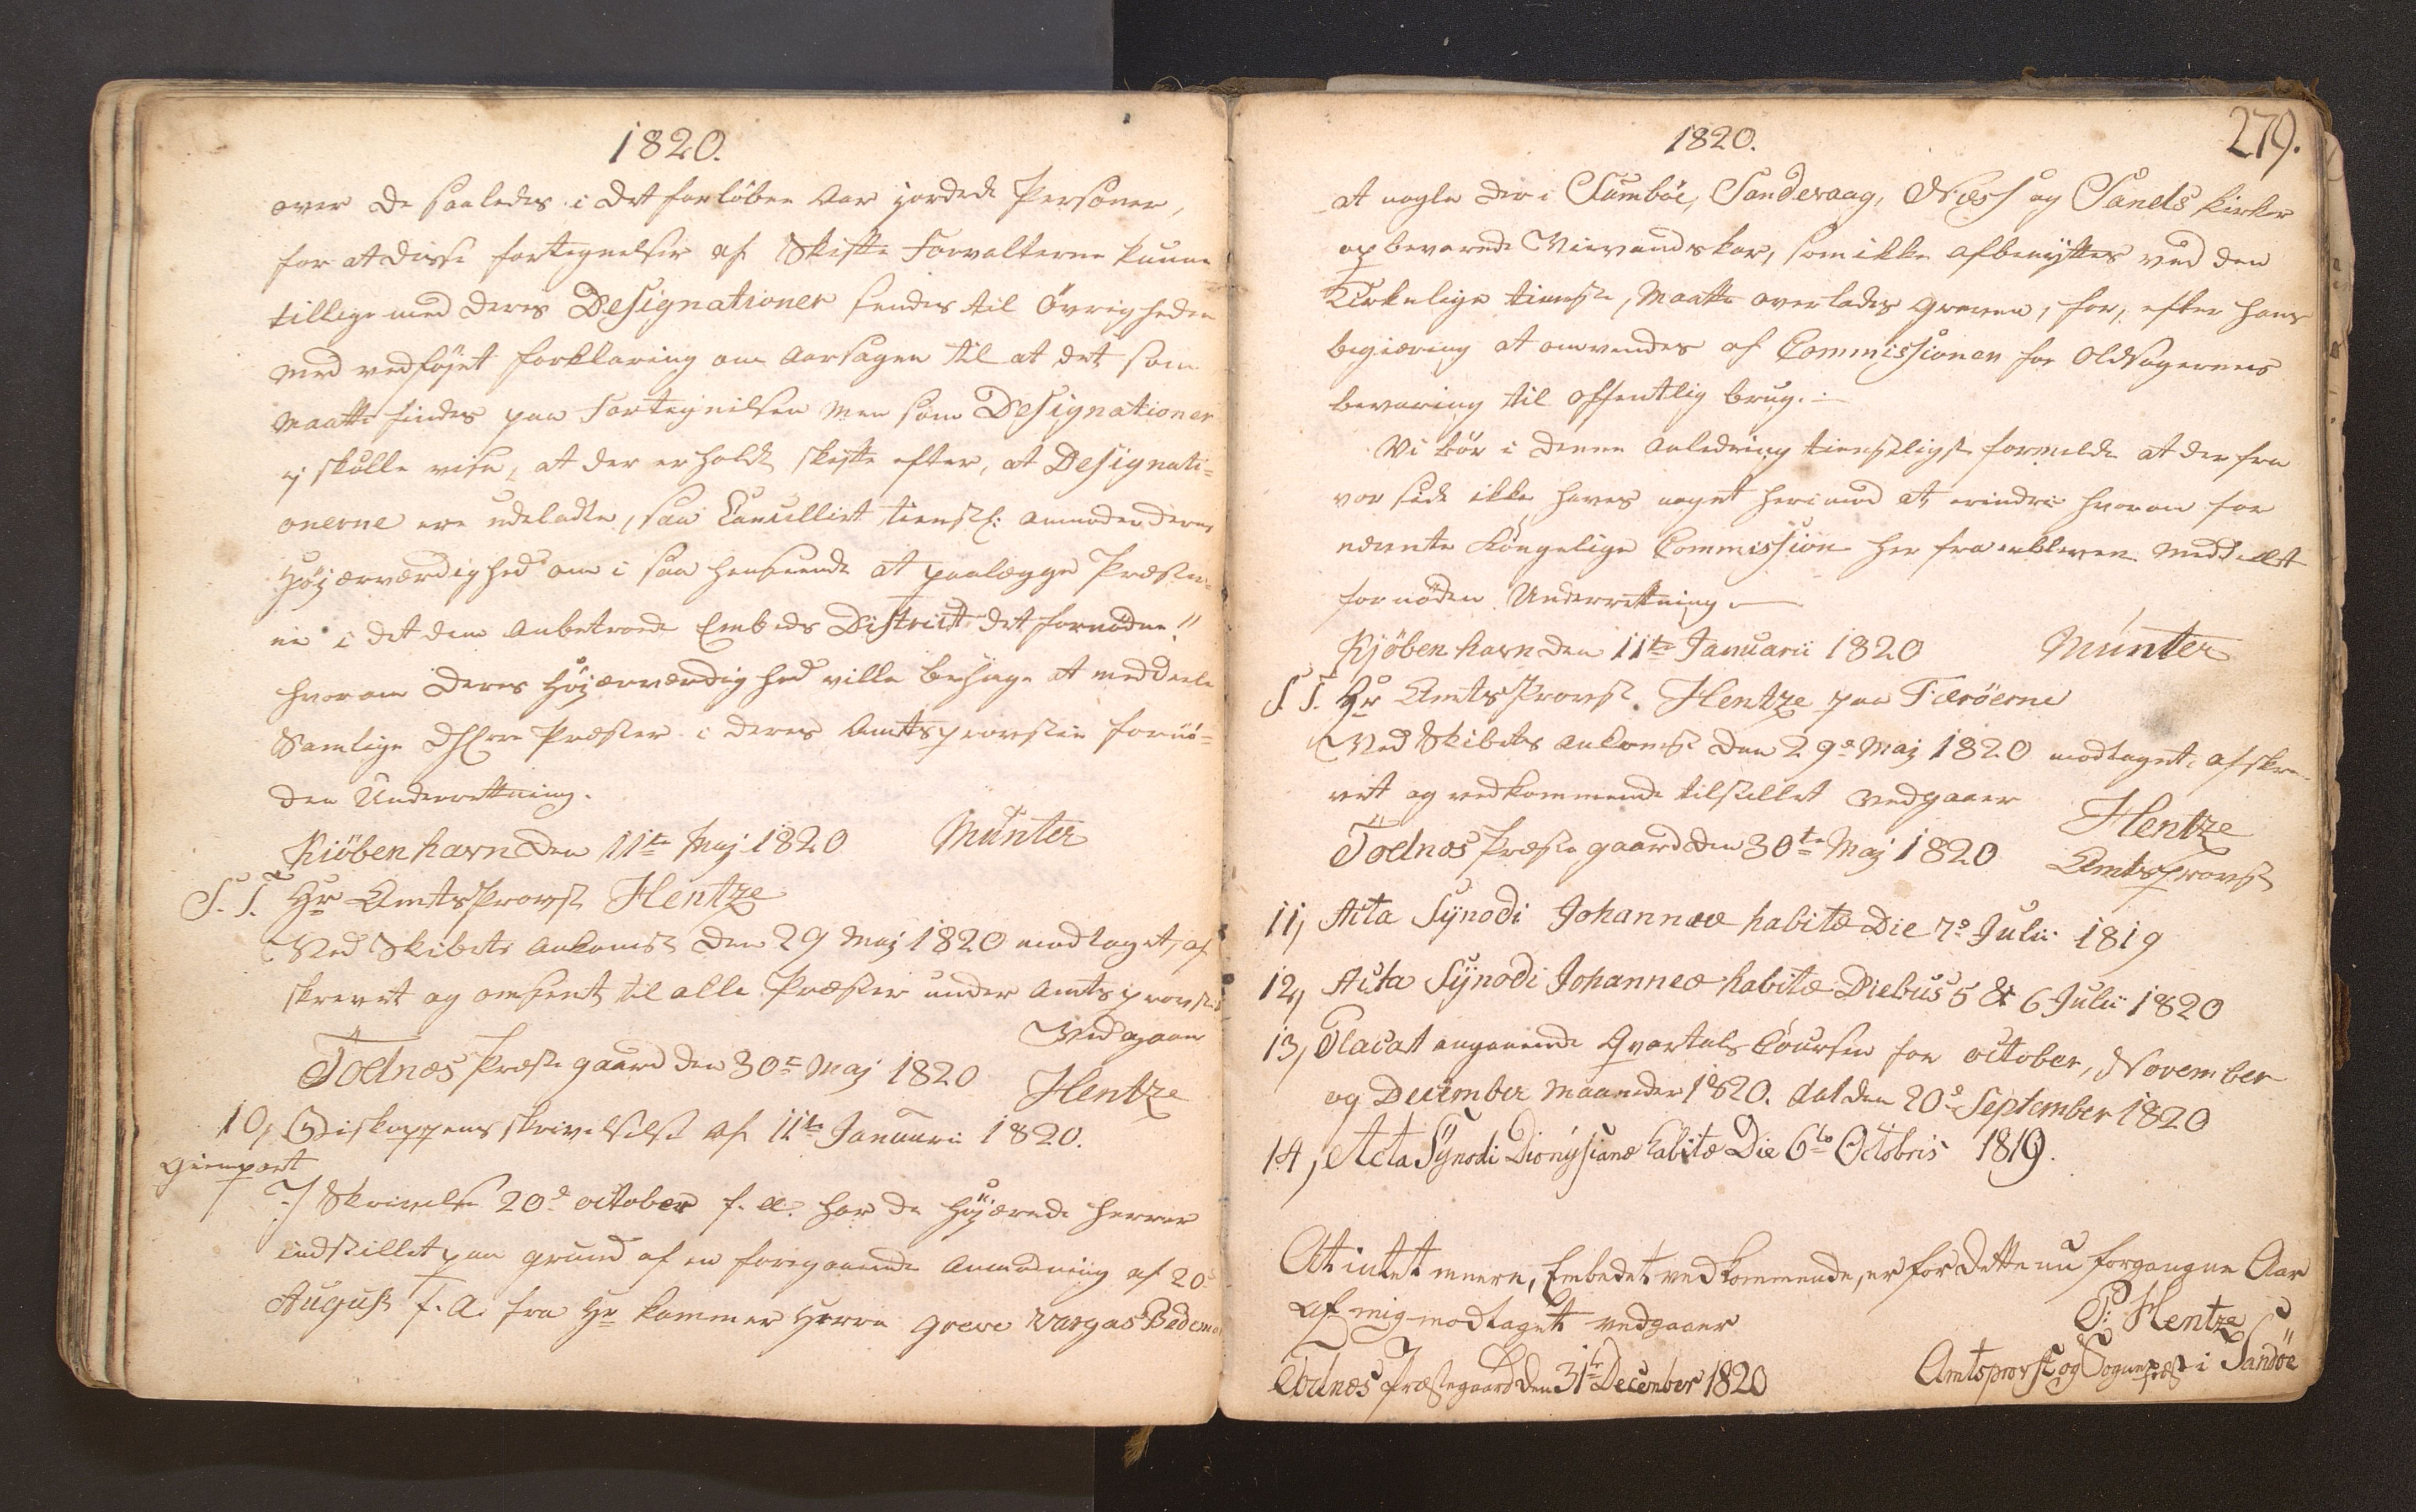 1820.
over de saaledes i det forløbne Aar jordede Personer,
for at disse fortegnelser af Skifte Forvalterne kunne
tillige med deres Designationer sendes til Øvrigheden
med vedføjet forklaring om Aarsagen til at det som
maatte findes paa Fortegnelsen men som Designationer
ej skulle vise, at der er holdt skifte efter, at Designati=
onerne ere udeladte, saa Cancelliet tienstl: anmoder deres
Højærværdighed om i saa henseende at paalægge Præster¬
ne i det dem Anbetroede Embeds District det fornødne!!
hvorom Deres Højærværdighed ville behage at meddeele
Samlige DHrrr Præster i deres Amtsprovstie fornø=
den Underretning.
Kiöbenhavn den 11te Maj 1820 Münter
S. T. Hr Amtsprovst Hentze
Ved Skibets Ankomst den 29 Maj 1820 modtaget, af
skrevet og omsent til alle Præster under Amtsprovstiet
Vedgaaer
Todnæs Præstegaard den 30te Maj 1820 Hentze
10, Biskoppens skrivelse af 11te Januarii 1820.
Gienpart
I Skrivelse 20de October f. A. har de højærede Herrer
indstillet paa grund af en foregaaende Anmodning af 20de
August f. A. fra Hr Kammer Herre Greve Vargas Bedemar
279.
1820.
at nogle der i Sumböe, Sandevaag, Næss og Sands kirker
opbevarede Vievandskar, som ikke afbenyttes ved den
Kirkelige tieneste, maatte overlades Greven, for, efter hans
begiæring at anvendes af Commissionen for Oldsagernes
bevaring til offentlig brug.
Vi bör i denne Anledning tienstligst formelde at der fra
vor side ikke haves noget herimod at erindre hvorom for
nævnte Kongelige Commission her fra er bleven meddeelt
fornöden Underretning.
Kjöbenhavn den 11te Januarii 1820 Münter
S. T. Hr Amtsprovst Hentze paa Færöerne
Ved Skibets Ankomst den 29de Maj 1820 modtaget, afskre¬
vet og vedkommende tilstillet vedgaaer
Hentze
Todnæs Præstegaard den 30te Maj 1820 Amtsprovst
11, Acta Synodi Johannææ habitæ Die 7de Julii 1819
12, Acta Synodi Johanneæ habitæ Diebus 5 & 6 Julii 1820
13, Placat angaaende Qvartals Coursen for october, November
og December Maaneder 1820. dat den 20de September 1820
14, Acta Synodi Dionysianæ habitæ Die 6to Octobris 1819.
At intet meere, Embedet vedkommende, er for dette nu forgangne Aar
af mig modtaget vedgaaer P: Hentze
Todnæs Præstegaard den 31te December 1820 Amtsprovst og Sognepræst i Sandöe